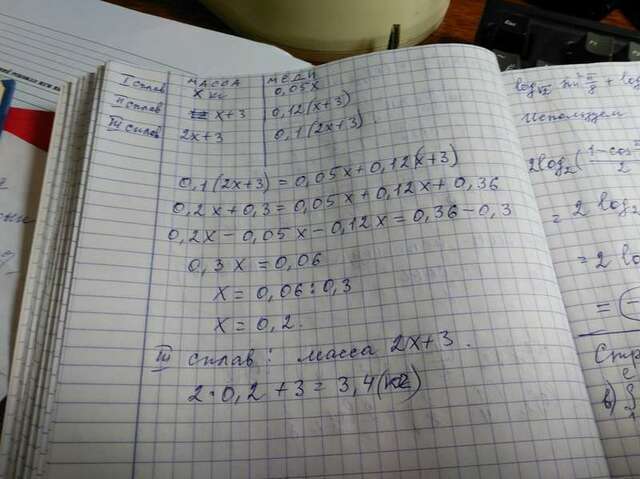 масса меди
I сплав x кг 0,05x
II сплав x+3 0,12(x+3)
III сплав 2x+3 0,1(2x+3).
0,1(2x+3) = 0,05x+0,12(x+3)
0,2x+0,3 = 0,05x+0,12x+0,36
0,2x-0,05x-0,12x = 0,36-0,3
0,3x = 0,06
x = 0,06:0,3
x = 0,2.
III сплав: масса 2x+3.
2·0,2+3 = 3,4(кг)
Используем
2log₂(1-cos
2
= 2 log₂
= 2 lo
=
Стр
в)